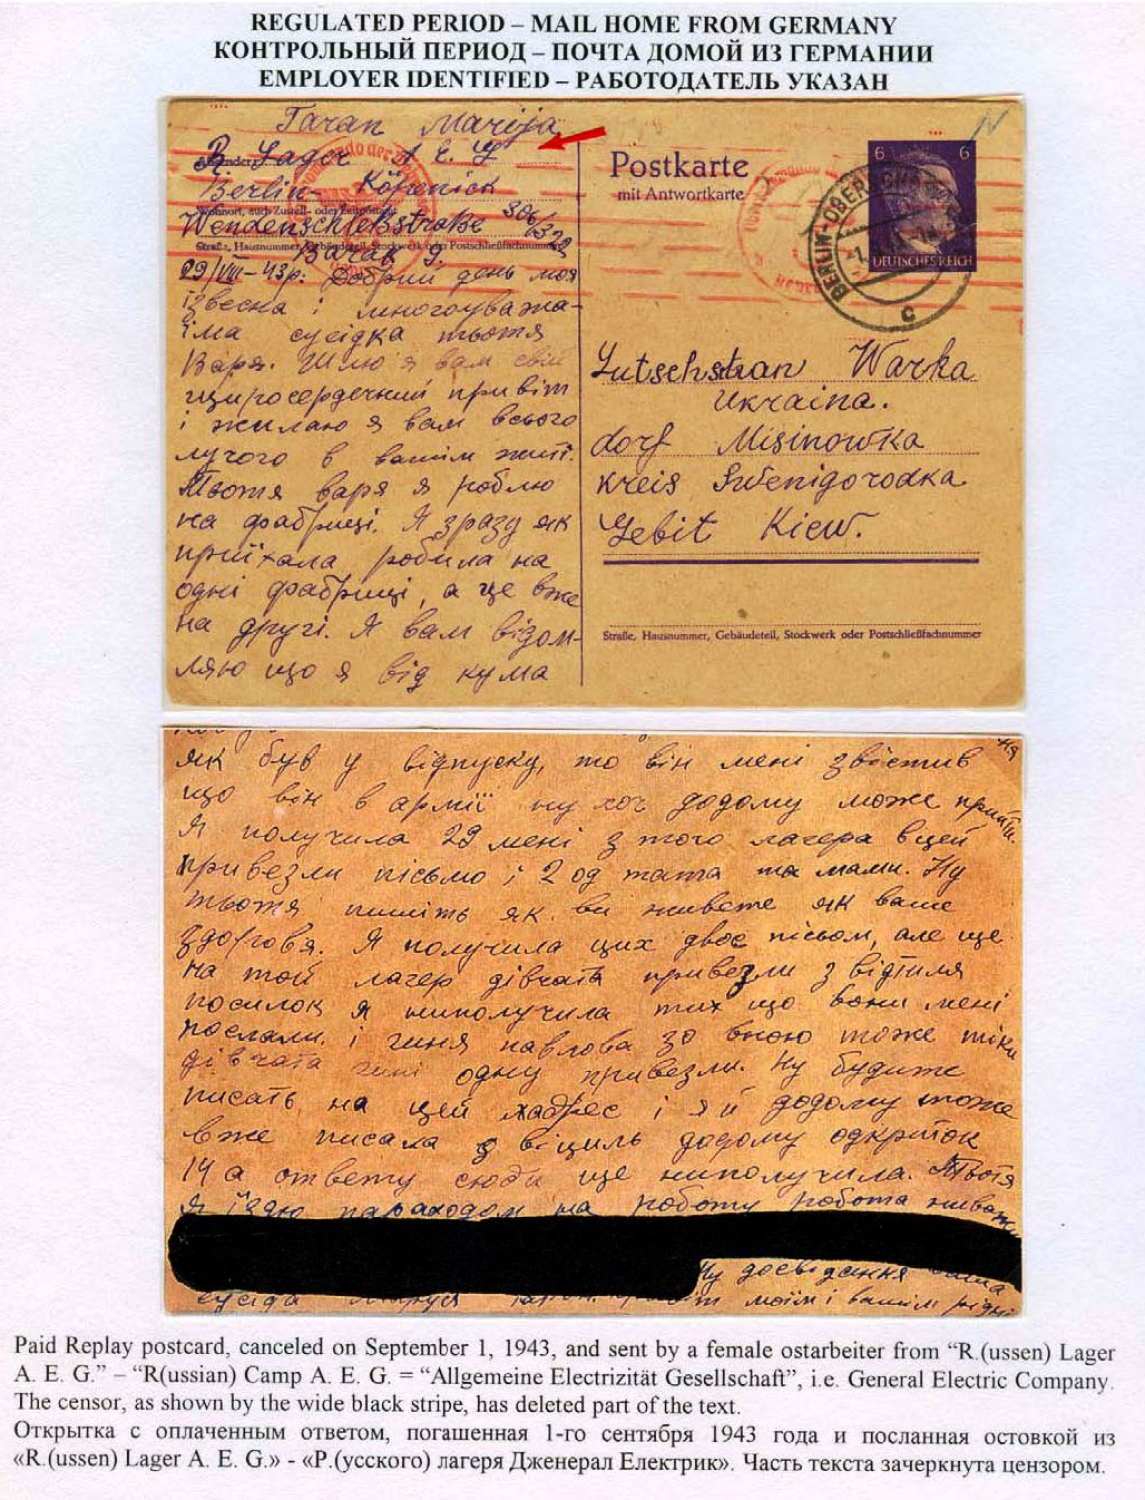 REGULATED PERIOD – MAIL HOME FROM GERMANY
КОНТРОЛЬНЫЙ ПЕРИОД – ПОЧТА ДОМОЙ ИЗ ГЕРМАНИИ
EMPLOYER IDENTIFIED – РАБОТОДАТЕЛЬ УКАЗАН
Taran Marija
R. Lager A. E. G
Berlin - Köpenick
Wohnort, auch Zustell- oder
Wendenschloßstraße
Straße, Hausnummer, Gebäudeteil, Stockwerk oder Postschließfachnummer
Barak 9.
29/VIII – 43р. Добрий день моя
ізвесна і многоуважа-
іма сусідка тьотя
Варя. Шлю я вам свій
щиросердечний привіт
і жилаю я вам всього
лучого в вашім житі.
Тьотя варя я роблю
на фабриці. Я зразу як
приїхала робила на
одні фабриці, а це вже
на другі. Я вам відом-
ляю що я від кума
Postkarte
mit Antwortkarte
6 6
DEUTSCHES REICH
BERLIN-OBERSCH
c
Lutschstan Warka
Ukraina.
dorf Misinowka
kreis Swenigorodka
Gebit Kiew.
Straße, Hausnummer, Gebäudeteil, Stockwerk oder Postschließfachnummer
як був у відпуску, то він мені звістив
що він в армії ну хоч додому може прийти.
Я получила 29 мені з того лагера вцей
привезли пісьмо і 2 од тата та мами. Ну
тьотя пишіть як ви живете як ваше
здоровя. Я получила цих двоє пісьом, але ще
на той лагер дівчата привезли з відтиля
посилок я ниполучила тих що вони мені
послали. і ганя павлова зо мною тоже тіки
дівчата одну привезли. Ну будите
писать на цей хадрес і я й додому тоже
вже писала з віциль додому одкриток
14 а ответу сюди ще ниполучила. Тьотя
я їздю параходом на роботу робота
Ну досвідання ваша
сусіда Маруся моїм і вашим рідні
Paid Replay postcard, canceled on September 1, 1943, and sent by a female ostarbeiter from “R.(ussen) Lager
A. E. G.” – “R(ussian) Camp A. E. G. = “Allgemeine Electrizität Gesellschaft”, i.e. General Electric Company.
The censor, as shown by the wide black stripe, has deleted part of the text.
Открытка с оплаченным ответом, погашенная 1-го сентября 1943 года и посланная остовкой из
«R.(ussen) Lager A. E. G.» - «Р.(усского) лагеря Дженерал Електрик». Часть текста зачеркнута цензором.